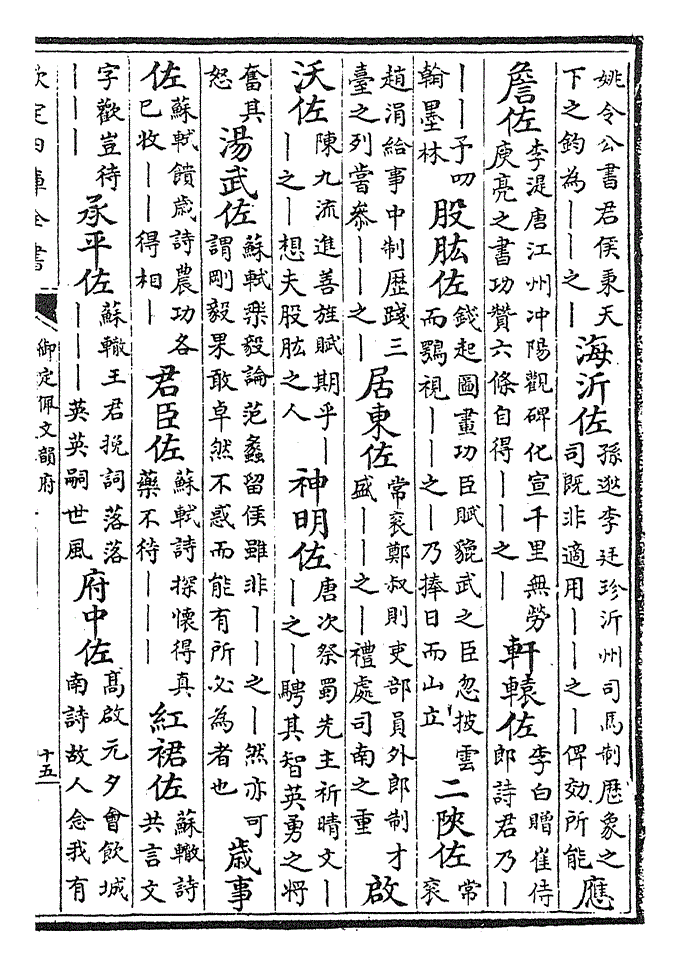 姚令公書君侯秉天
下之鈞為——之—
海沂佐
孫逖李廷珍沂州司馬制歷象之
司既非適用——之—俾効所能
應
詹佐
李湜唐江州冲陽觀碑化宣千里無勞
庾亮之書功贊六條自得——之—
軒轅佐
李白贈崔侍
郎詩君乃—
——予叨
翰墨林
股肱佐
錢起圖畫功臣賦貔武之臣忽披雲
而鶚視——之—乃捧日而山立
二陝佐
常
袞
趙涓給事中制歷踐三
臺之列嘗叅——之—
居東佐
常袞鄭叔則吏部員外郎制才
盛——之—禮處司南之重
啟
沃佐
陳九流進善旌賦期乎—
—之—想夫股肱之人
神明佐
唐次祭蜀先主祈晴文—
—之—騁其智英勇之將
奮其
怒
湯武佐
蘇軾樂毅論范蠡留侯雖非——之—然亦可
謂剛毅果敢卓然不惑而能有所必為者也
歲事
佐
蘇軾饋歲詩農功各
已收——得相—
君臣佐
蘇軾詩探懷得真
藥不待———
紅裙佐
蘇轍詩
共言文
字歡豈待
———
承平佐
蘇轍王君挽詞落落
———英英嗣世風
府中佐
高啟元夕會飲城
南詩故人念我有
欽定四庫全書
御定佩文韻府
十五